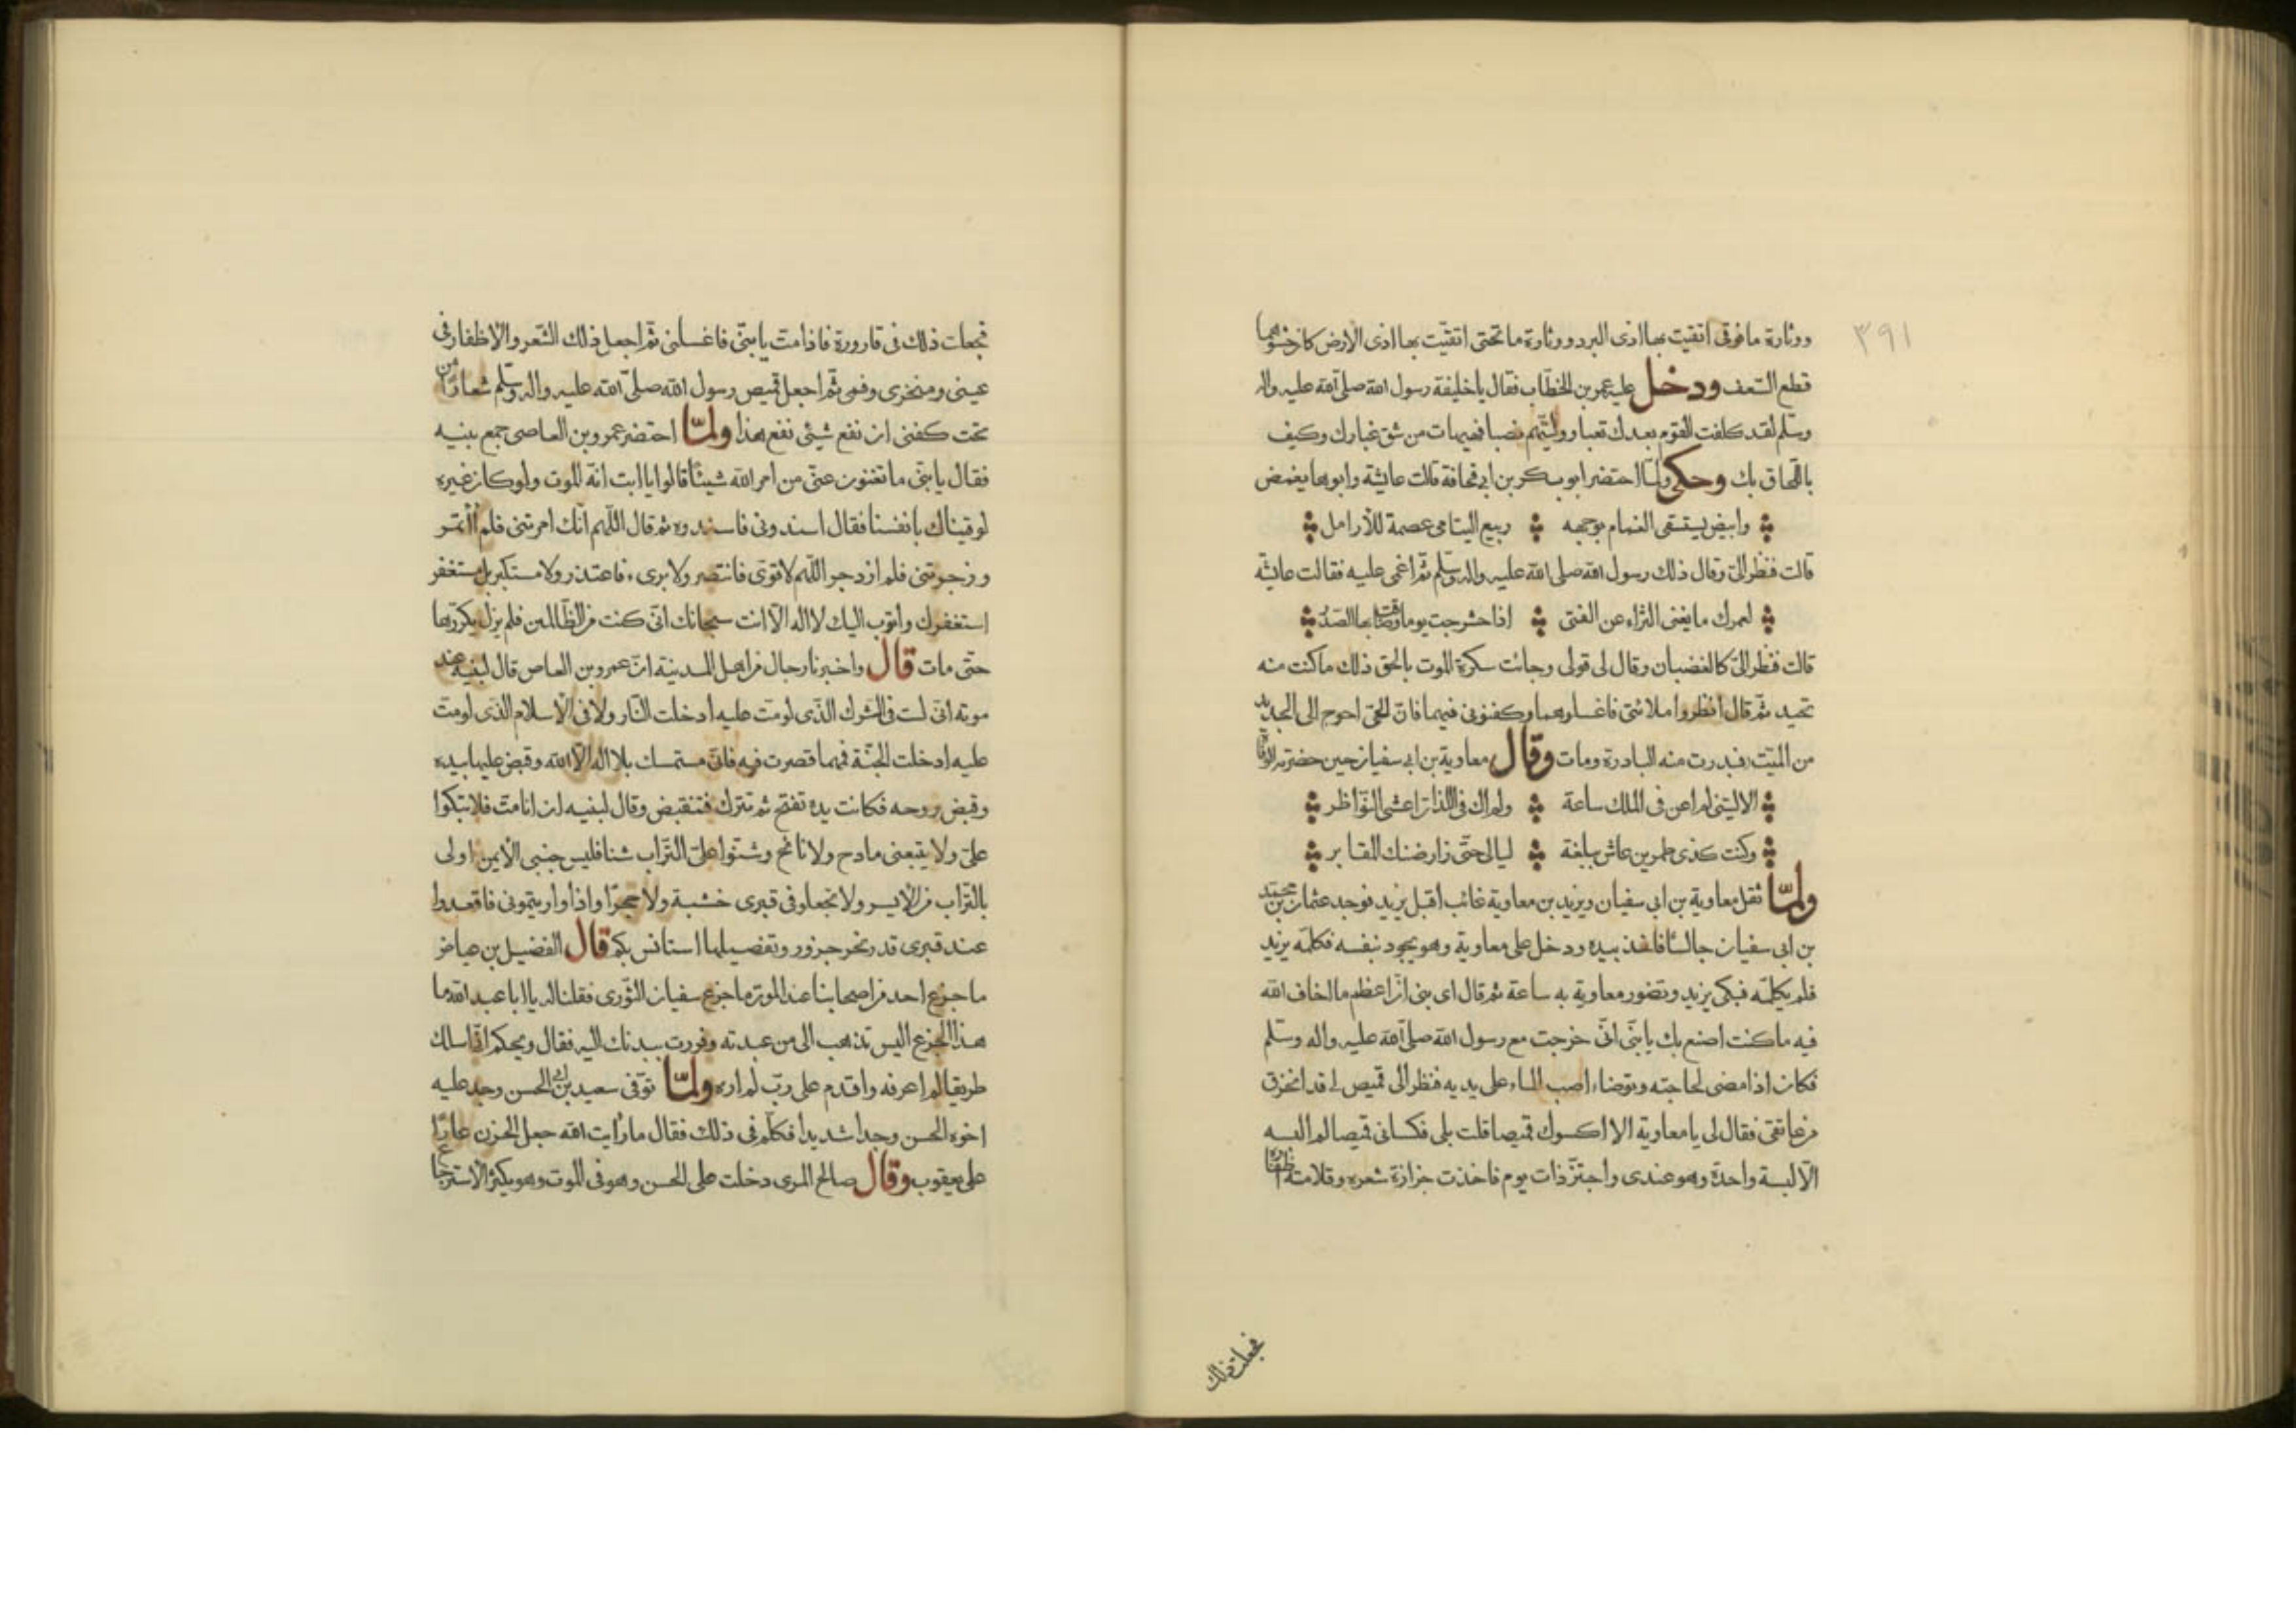 ٣٩١
ووثارة ما فوقى اتقيت بها اذى البرد ووثارة ما تحتى اتقيت بها اذى الارض كان حشوهما
قطع السعف ودخل عليه عمر بن الخطاب فقال يا خليفة رسول الله صلى الله عليه واله
وسلم لقد كلفت القوم بعدك تعبا ووليتهم نصبا فهيهات من شق غبارك وكيف
باللحاق بك وحكى ولما احتضر ابو بكر بن ابى قحافة قالت عايشة وابوها يغمض
وابيض يستسقى الغمام بوجهه ربيع اليتامى عصمة للأرامل
قالت فنظر الىّ وقال ذلك رسول الله صلى الله عليه واله وسلم ثم اغمى عليه فقالت عايشة
لعمرك ما يغنى الثراء عن الفتى اذا حشرجت يوما وضاق بها الصدر
قالت فنظر الىّ كالغضبان وقال لى قولى وجائت سكرة الموت بالحق ذلك ما كنت منه
تحيد ثم قال انظروا ملائتى فاغسلوهما وكفنونى فيهما فان الحى احوج الى الجديد
من الميت فبدرت منه البادرة ومات وقال معاوية بن ابى سفيان حين حضرته الوفاة
الا ليتنى لم اعن فى الملك ساعة ولم اك فى اللذات اعشى النواظر
وكنت كذى طمرين عاش ببلغة ليالى حتى زار ضنك المقابر
ولمّا ثقل معاوية بن ابى سفيان ويزيد بن معاوية غائب اقبل يزيد فوجد عثمان بن محمد
بن ابى سفيان جالسًا فاخذ بيده ودخل على معاوية وهو يجود بنفسه فكلمه يزيد
فلم يكلمه فبكى يزيد وتضور معاوية به ساعة ثم قال اى بنى ان اعظم ما اخاف الله
فيه ما كنت اصنع بك يا بنى انى خرجت مع رسول الله صلى الله عليه واله وسلم
فكان اذا مضى لحاجته وتوضاء اصب الماء على يديه فنظر الى قميص لى قد انخرق
من عاتقى فقال لى يا معاوية الا اكسوك قميصا قلت بلى فكسانى قميصا لم البسه
الّا لبسة واحدة وهو عندى واجتز ذات يوم فاخذت جزازة شعره وقلامة اظفاره
فجعلت ذلك
فجعلت ذلك فى قارورة فاذا مت يا بنى فاغسلنى ثم اجعل ذلك الشعر والاظفار فى
عينى ومنخرى وفمى ثم اجعل قميص رسول الله صلى الله عليه واله وسلم شعارًا من
تحت كفنى ان نفع شيئى نفع هذا ولمّا احتضر عمرو بن العاصى جمع بنيه
فقال يا بنى ما تغنون عنى من امر الله شيئًا قالوا يا ابت انه الموت ولو كان غيره
لوقيناك بانفسنا فقال اسندونى فاسندوه ثم قال اللهم انك امرتنى فلم أأتمر
وزجرتنى فلم ازدجر اللهم لا قوى فانتصر ولا برى ء فاعتذر ولا مستكبر بل مستغفر
استغفرك واتوب اليك لا اله الا انت سبحانك انى كنت من الظالمين فلم يزل يكررها
حتى مات قال واخبرنا رجال من اهل المدينة ان عمرو بن العاص قال لبنيه عند
موته انى لست فى الشرك الذى لو مت عليه ادخلت النار ولا فى الاسلام الذى لو مت
عليه ادخلت الجنة فمهما قصرت فيه فانى مستمسك بلا اله الا الله وقبض عليها بيده
وقبض روحه فكانت يده تفتح ثم تترك فتنقبض وقال لبنيه ان انا مت فلا تبكوا
علىّ ولا يتبعنى مادح ولا نائح وشنوا علىّ التراب شنا فليس جنبى الايمن اولى
بالتراب من الايسر ولا تجعلو فى قبرى خشبة ولا حجرًا واذا واريتمونى فاقعدوا
عند قبرى قدر نحر جزور وتفصيلها استانس بكم قال الفضيل بن عياض
ما جزع احد من اصحابنا عند الموت ما جزع سفيان الثورى فقلنا له يا ابا عبد الله ما
هذا الجزع اليس تذهب الى من عبدته وفررت ببدنك اليه فقال ويحكم انى اسلك
طريقا لم اعرفه واقدم على رب لم اره ولمّا توفى سعيد بن ابى الحسن وجد عليه
اخوه الحسن وجدا شديدا فكلم فى ذلك فقال ما رايت الله جعل الحزن عارًا
على يعقوب وقال صالح المرى دخلت على الحسن وهو فى الموت وهو يكثر الاسترجاع